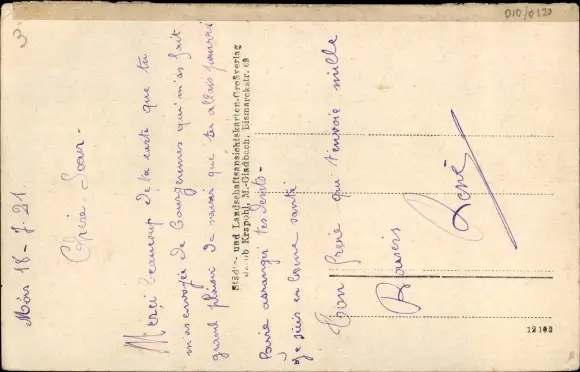 010/0120
3
Mörs 18-7-21
Chère Sœur-
Merci beaucoup de la carte que tu
m'as envoyée de Bourgeremes qui m'as fait
grand plaisir de savoir que tu allais
faire arranger tes dents-
Je suis en bonne santé
Ton frère qui t'envoie mille
Baisers
René
Städte- und Landschaftsansichtskarten-Großverlag
Jakob Krapohl, M.-Gladbach, Bismarckstr. 69
12102